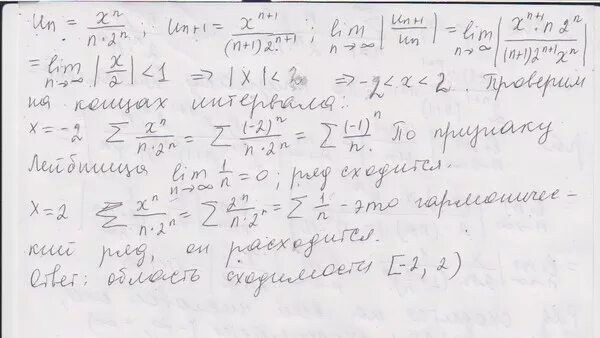 Un = xⁿ / (n·2ⁿ); Un+1 = xⁿ⁺¹ / ((n+1)2ⁿ⁺¹); lim n→∞ |Un+1 / Un| = lim n→∞ |xⁿ⁺¹ n 2ⁿ / ((n+1)2ⁿ⁺¹ xⁿ)|
= lim n→∞ |x/2| < 1 ⇒ |x| < 2 ⇒ -2 < x < 2. Проверим
на концах интервала:
x = -2 ∑ xⁿ / (n·2ⁿ) = ∑ (-2)ⁿ / (n·2ⁿ) = ∑ (-1)ⁿ / n. По признаку
Лейбница lim n→∞ 1/n = 0; ряд сходится.
x = 2 ∑ xⁿ / (n·2ⁿ) = ∑ 2ⁿ / (n·2ⁿ) = ∑ 1/n - это гармоничес-
кий ряд, он расходится.
Ответ: область сходимости [-2, 2)